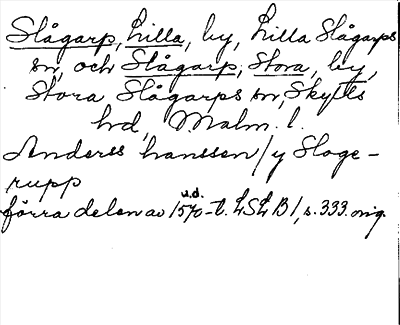 Slågarp, Lilla, by, Lilla Slågarps
sn, och Slågarp, Stora, by,
Stora Slågarps sn, Skytts
hd, Malm. l.
Anderss hanssen / y Sloge-
rupp
u.d.
förra delen av 1570-t. LSLB 1, s. 333. orig.